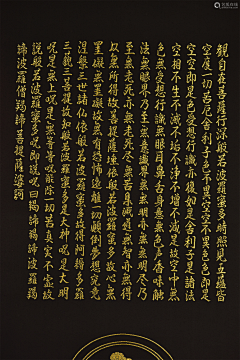 觀自在菩薩行深般若波羅蜜多時照見五蘊皆
空度一切苦厄舍利子色不異空空不異色色即是
空空即是色受想行識亦復如是舍利子是諸法
空相不生不滅不垢不淨不增不減是故空中無
色無受想行識無眼耳鼻舌身意無色聲香味觸
法無眼界乃至無意識界無無明亦無無明盡乃
至無老死亦無老死盡無苦集滅道無智亦無得
以無所得故菩提薩埵依般若波羅蜜多故心無
罣礙無罣礙故無有恐怖遠離一切顛倒夢想究竟
涅槃三世諸佛依般若波羅蜜多故得阿耨多羅
三藐三菩提故知般若波羅蜜多是大神呪是大明
呪是無上呪是無等等呪能除一切苦真實不虛故
說般若波羅蜜多呪即說呪曰揭諦揭諦波羅揭
諦波羅僧揭諦菩提薩婆訶